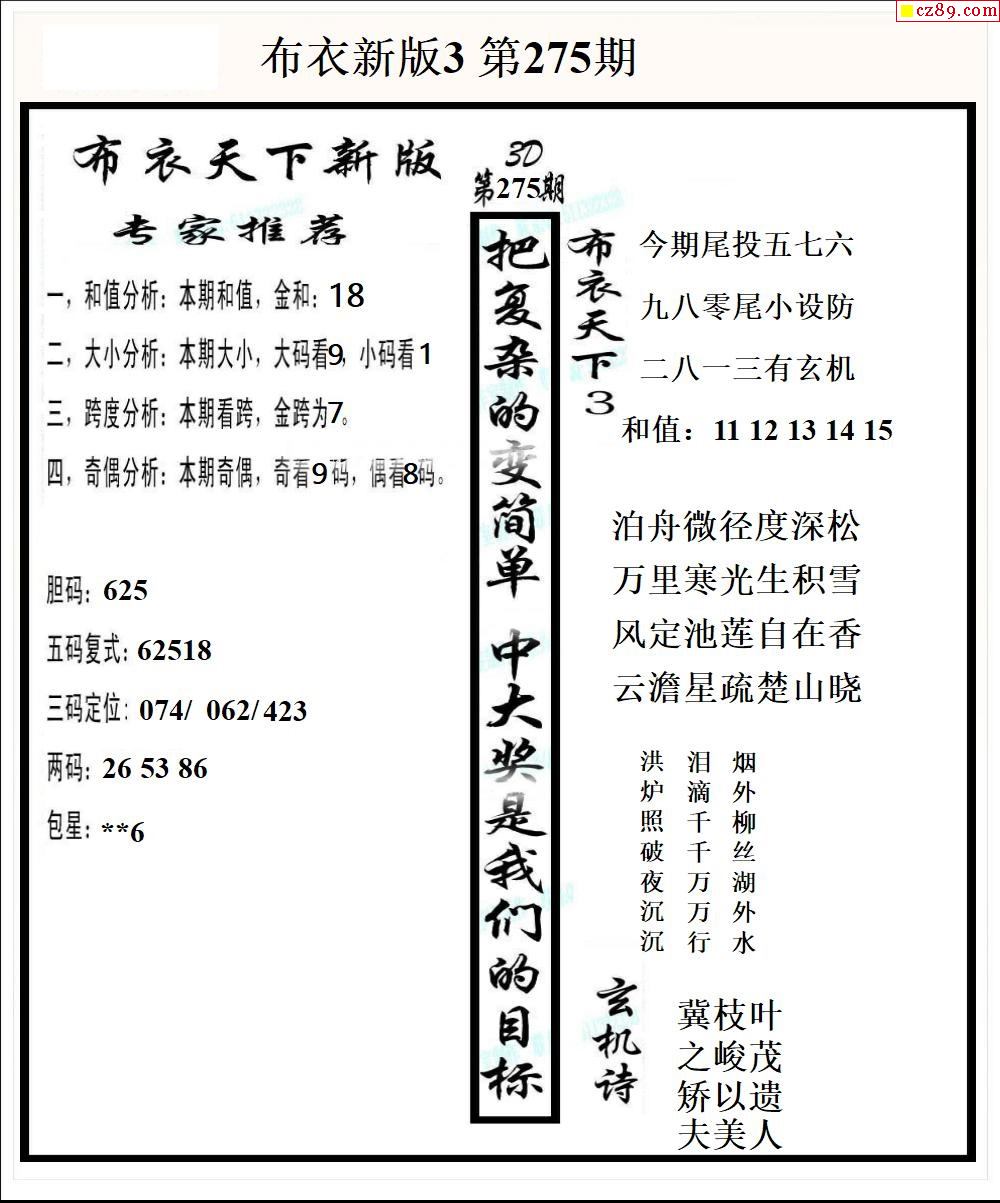 cz89.com
布衣新版3 第275期
布衣天下新版
专家推荐
一，和值分析：本期和值，金和：18
二，大小分析：本期大小，大码看9，小码看1
三，跨度分析：本期看跨，金跨为7。
四，奇偶分析：本期奇偶，奇看9码，偶看8码。
胆码：625
五码复式：62518
三码定位：074/ 062/423
两码：26 53 86
包星：**6
3D
第275期
把复杂的变简单 中大奖是我们的目标
布衣天下3
今期尾投五七六
九八零尾小设防
二八一三有玄机
和值：11 12 13 14 15
泊舟微径度深松
万里寒光生积雪
风定池莲自在香
云澹星疏楚山晓
烟外柳丝湖外水
泪滴千千万万行
洪炉照破夜沉沉
玄机诗
冀枝叶
之峻茂
矫以遗
夫美人